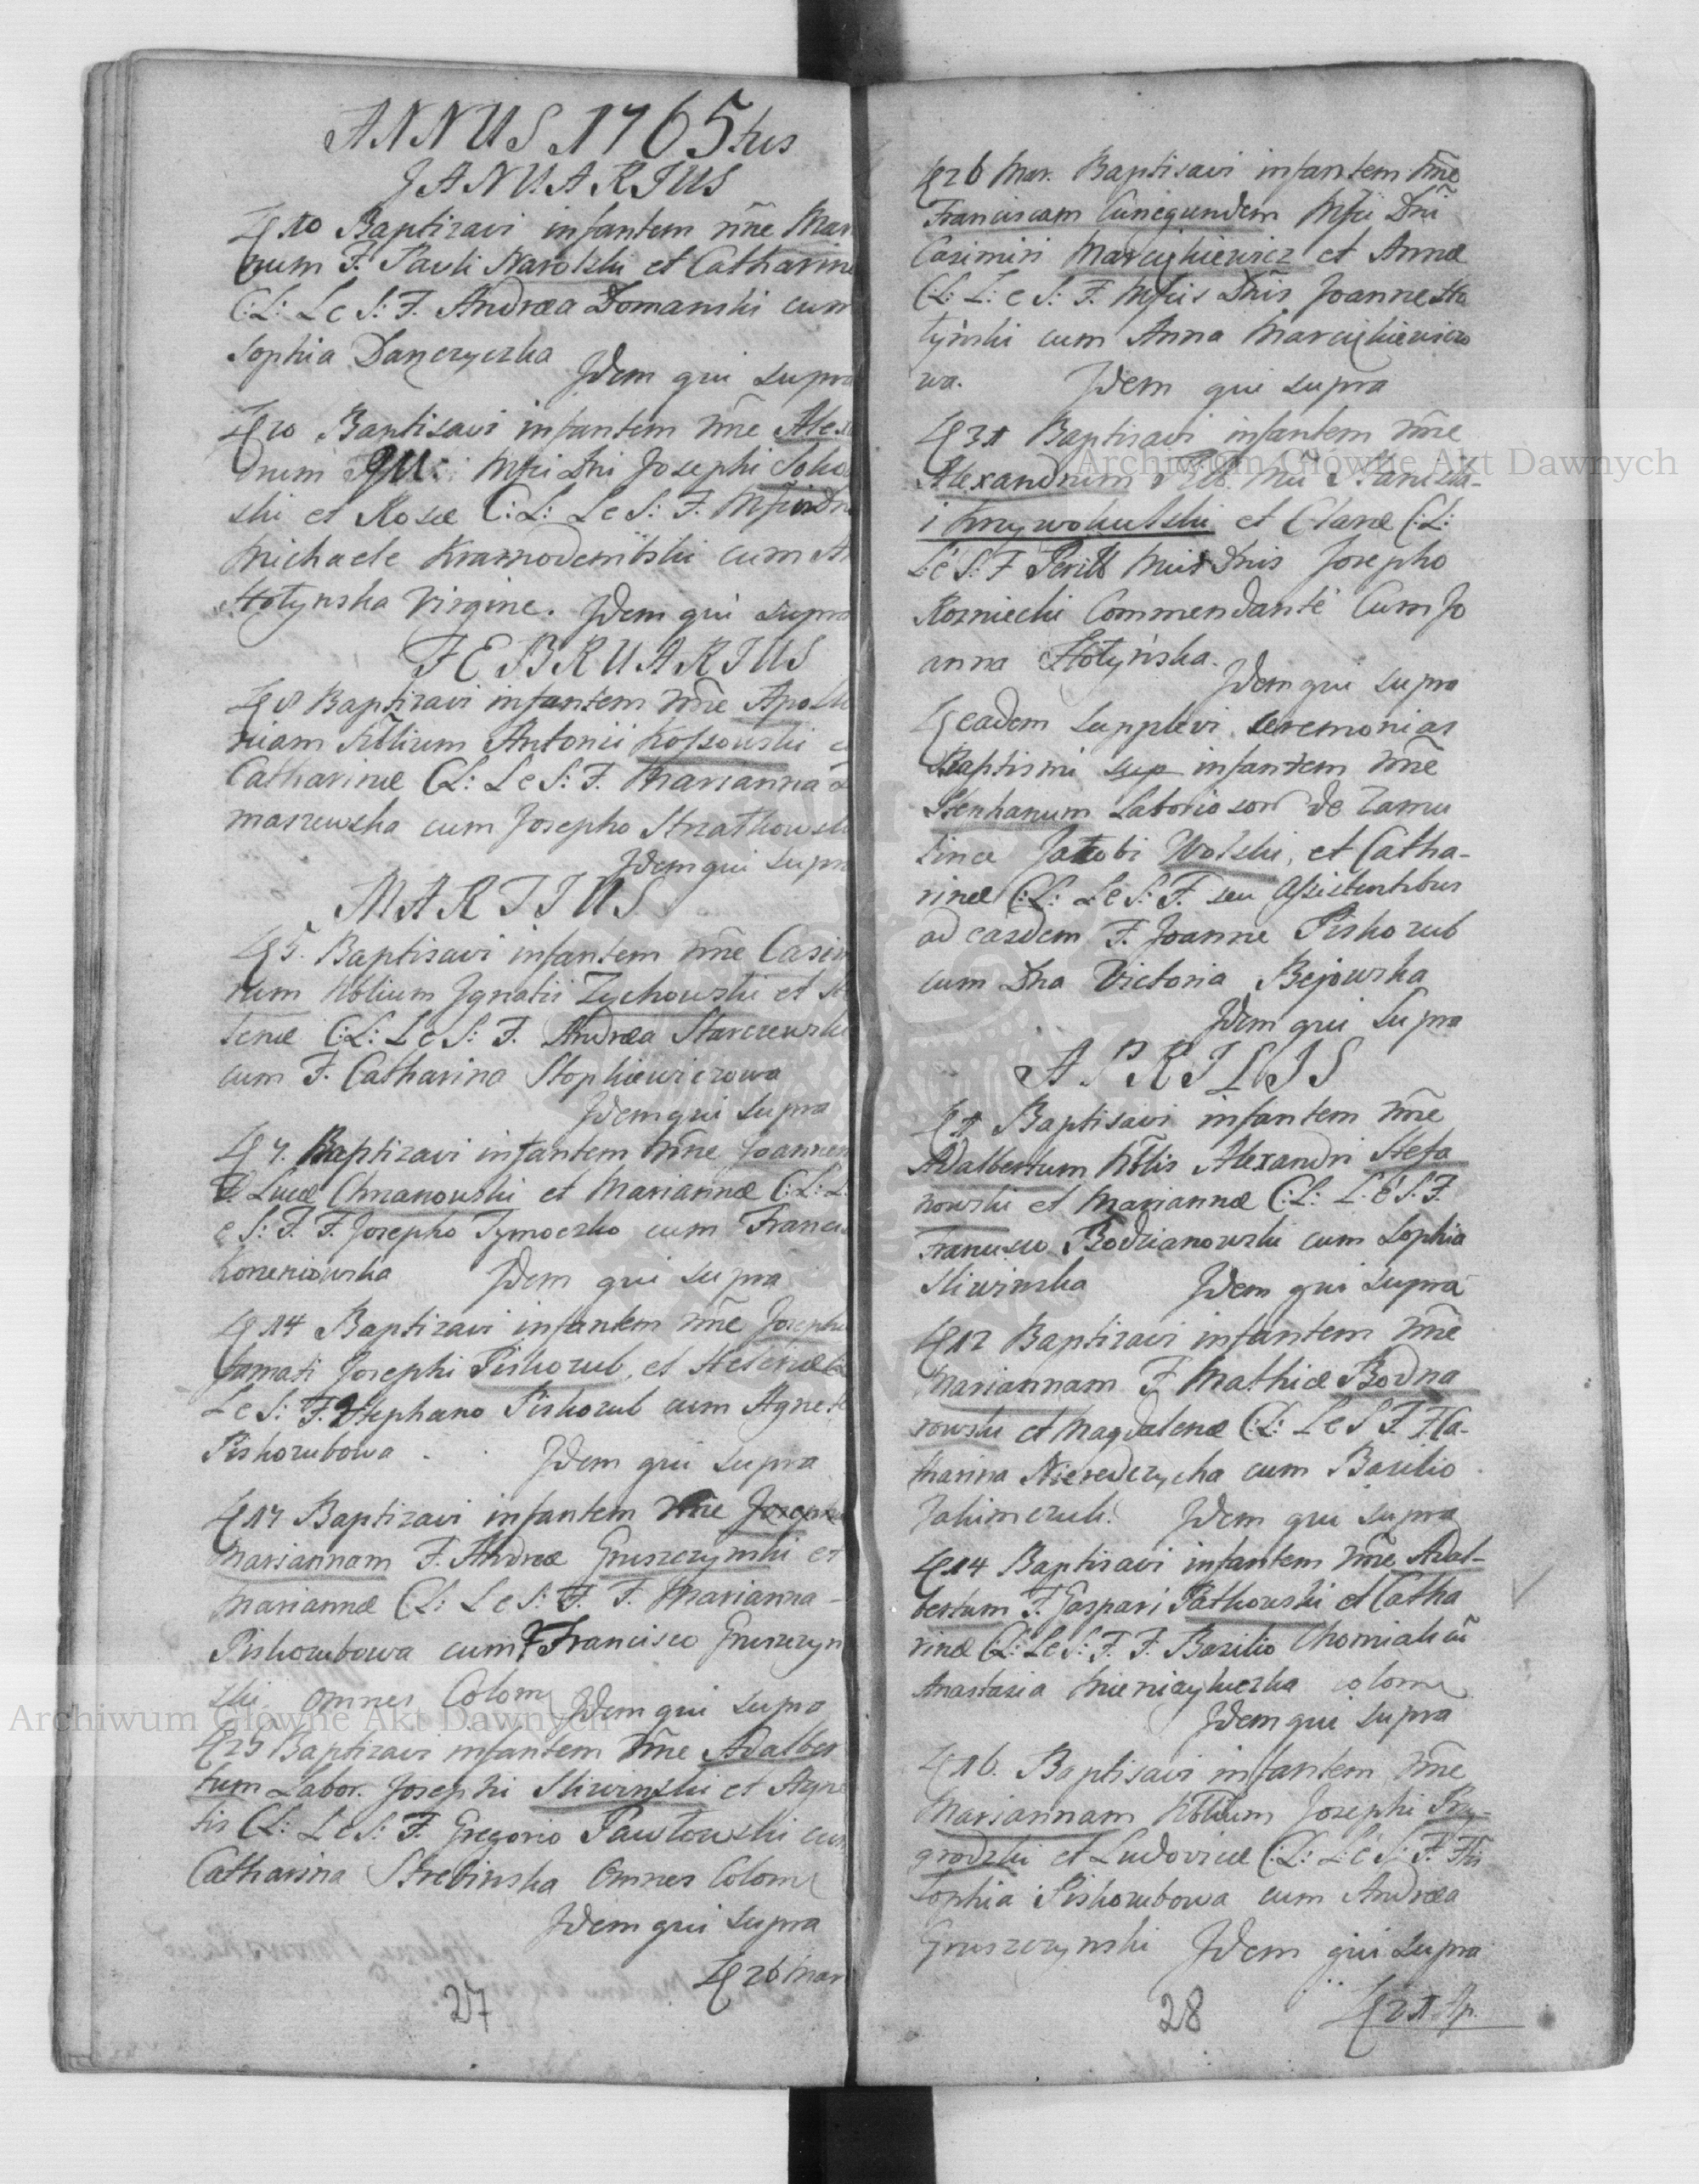 ANNUS 1765tus
JANUARIUS
10 Baptizavi infantem nne Mar
num F. Pauli Narolski et Catharine
C:L: L e S: F. Andrea Domanski cum
Sophia Danczyczka
Idem qui supra
20 Baptisavi infantem nne Alex
drum Mfci Dni Josephi Soko
ski et Rosæ C:L: L e S: F.
Michaele Krasnodembski cum
Hołynska Virgine. Idem qui supra
FEBRUARIUS
8 Baptizavi infantem nne Apollo
niam Nblium Antonii Kossowski e
Catharinæ CL: L e S: F. Marianna
maszewska cum Josepho Strzałkowski
Idem qui supra
MARTIUS
5. Baptisavi infantem nne Casim
rum Nblium Ignatii Zychowski et
lenæ C:L: L e S: F. Andrea Starczewski
cum F. Catharina Stopkiewiczowa
Idem qui supra
7. Baptizavi infantem nne Joannem
F. Lucæ Chrzanowski et Mariannæ C:L: L
e S: F. F. Josepho Tymoczko cum Francis
Korzeniowska Idem qui supra
14 Baptizavi infantem nne Josephu
famati Josephi Piskozub, et Helenæ C
L e S: F. Stephano Piskozub cum Agnete
Piskozubowa. Idem qui supra
17 Baptizavi infantem nne Josephu
Mariannam F. Andreæ Gruszczynski et
Mariannæ CL: L e S: F. F. Marianna
Piskozubowa cum F Francisco Gruszczyn
ski omnes Colomy Idem qui supra
25 Baptizavi infantem nne Adalber
tum Labor. Josephi Sliwinski et Agne
tis CL: L e S: F. Gregorio Pawłowski cum
Catharina Skrebinska Omnes Colomy
Idem qui supra
26 Mar
27
26 Mar. Baptisavi infantem nne
Franciscam Cunegundem Mfci Dni
Casimiri Marcijkiewicz et Annæ
C:L: L: e S: F. Mfcis Dnis Joanne Ho
łyński cum Anna Marcijkiewiczo
wa. Idem qui supra
31 Baptisavi infantem nne
Alexandrum Stanisła-
i Krzywokulski et Claræ C:L:
L: e S: F Perill Dnis Josepho
Rozniecki Commendante Cum Jo
anna Hołyńska.
Idem qui supra
eadem supplevi ceremonias
Baptismi sup infantem nne
Stephanum Laborioson de Zamu
lince Jacobi Wolski, et Catha-
rinæ C:L: L e S: F. seu Assistentibus
ad easdem F. Joanne Piskozub
cum Dna Victoria Bejowska
Idem qui supra
APRILIS
1 Baptisavi infantem nne
Adalbertum Nblis Alexandri Stefa
nowski et Mariannæ C:L: L: e S: F.
Francisco Bodzianowski cum Sophia
Sliwinska Idem qui supra
12 Baptizavi infantem nne
Mariannam F Mathiæ Bodna
rowski et Magdalenæ C:L: L e S F. F Ca-
tharina Nieredczycha cum Basilio
Jakimczuk. Idem qui supra
14 Baptisavi infantem nne Adal-
bertum F. Gaspari Patkowski et Catha
rinæ CL: L e S: F. F. Bazilio Chomiak cu
Anastasia colomy
Idem qui supra
16. Baptisavi infantem nne
Mariannam Nblium Josephi Przy-
grodzki et Ludovicæ C:L: L: e S: F.
Sophia Piskozubowa cum Andrea
Gruszczynski Idem qui supra
21 Ap.
28
Archiwum Główne Akt Dawnych
Archiwum Główne Akt Dawnych